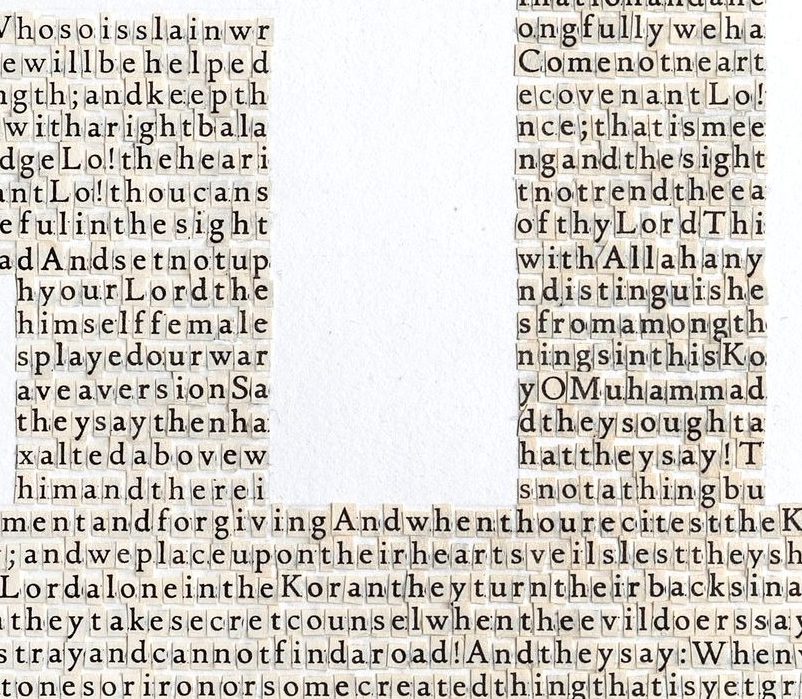 Whosoisslainwr ongfullyweha
ewillbehelped Comenotneart
ngth;andkeepth ecovenantLo!
witharightbala nce;thatismee
dgeLo!theheari ngandthesight
antLo!thoucans tnotrendtheea
efulinthesight ofthyLordThi
adAndsetnotup withAllahany
hyourLordthe ndistinguishe
himselffemale sfromamongth
splayedourwar ningsinthisKo
aveaversionSa yOMuhammad
theysaythenha dtheysoughta
xaltedabovew hattheysay!T
himandtherei snotathingbu
mentandforgivingAndwhenthourecitesttheK
;andweplaceupontheirheartsveilslesttheysh
LordaloneintheKorantheyturntheirbacksina
theytakesecretcounselwhentheevildoerssay
strayandcannotfindaroad!Andtheysay:When
tonesorironorsomecreatedthingthatisyetgr